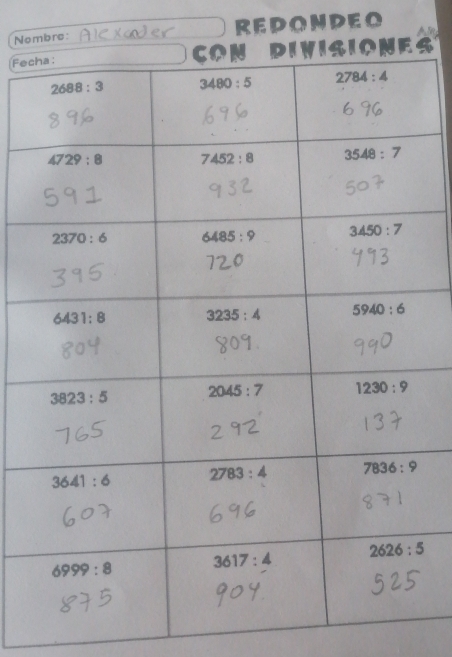 Nombre: Alexander
REDONDEO
Fecha:
CON DIVISIONES
2688 : 3
3480 : 5
2784 : 4
896
696
696
4729 : 8
7452 : 8
3548 : 7
591
932
507
2370 : 6
6485 : 9
3450 : 7
395
720
493
6431: 8
3235 : 4
5940 : 6
804
809
990
3823 : 5
2045 : 7
1230 : 9
765
292
137
3641 : 6
2783 : 4
7836 : 9
607
696
871
6999 : 8
3617 : 4
2626 : 5
875
904
525